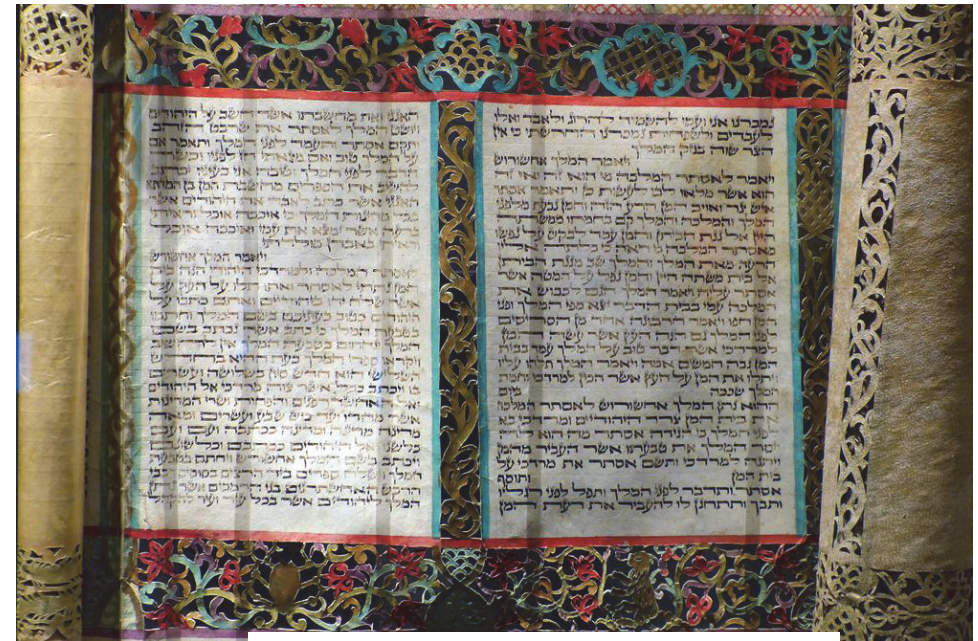 נמכרנו אני ועמי להשמיד להרוג ולאבד ואלו
לעבדים ולשפחות נמכרנו החרשתי כי אין
הצר שוה בנזק המלך
ויאמר המלך אחשורוש
ויאמר לאסתר המלכה מי הוא זה ואי זה
הוא אשר מלאו לבו לעשות כן ותאמר אסתר
איש צר ואויב המן הרע הזה והמן נבעת מלפני
המלך והמלכה והמלך קם בחמתו ממשתה
היין אל גנת הביתן והמן עמד לבקש על נפשו
מאסתר המלכה כי ראה כי כלתה אליו
הרעה מאת המלך והמלך שב מגנת הביתן
אל בית משתה היין והמן נפל על המטה אשר
אסתר עליה ויאמר המלך הגם לכבוש את
המלכה עמי בבית הדבר יצא מפי המלך ופני
המן חפו ויאמר חרבונה אחד מן הסריסים
לפני המלך גם הנה העץ אשר עשה המן
למרדכי אשר דבר טוב על המלך עמד בבית
המן גבה חמשים אמה ויאמר המלך תלהו עליו
ויתלו את המן על העץ אשר הכין למרדכי וחמת
המלך שככה ביום
ההוא נתן המלך אחשורוש לאסתר המלכה
את בית המן צרר היהודיים ומרדכי בא
לפני המלך כי הגידה אסתר מה הוא לה
ויסר המלך את טבעתו אשר העביר מהמן
ויתנה למרדכי ותשם אסתר את מרדכי על
בית המן ותוסף
אסתר ותדבר לפני המלך ותפל לפני רגליו
ותבך ותתחנן לו להעביר את רעת המן
האגגי ואת מחשבתו אשר חשב על היהודים
ויושט המלך לאסתר את שרבט הזהב
ותקם אסתר ותעמד לפני המלך ותאמר אם
על המלך טוב ואם מצאתי חן לפניו וכשר
הדבר לפני המלך וטובה אני בעיניו יכתב
להשיב את הספרים מחשבת המן בן המדתא
האגגי אשר כתב לאבד את היהודים אשר
בכל מדינות המלך כי איככה אוכל וראיתי
ברעה אשר ימצא את עמי ואיככה אוכל
וראיתי באבדן מולדתי
ויאמר המלך אחשורוש
לאסתר המלכה ולמרדכי היהודי הנה בית
המן נתתי לאסתר ואתו תלו על העץ על
אשר שלח ידו ביהודיים ואתם כתבו על
היהודים כטוב בעיניכם בשם המלך וחתמו
בטבעת המלך כי כתב אשר נכתב בשם
המלך ונחתום בטבעת המלך אין להשיב
ויקראו ספרי המלך בעת ההיא בחדש
השלישי הוא חדש סיון בשלושה ועשרים
בו ויכתב ככל אשר צוה מרדכי אל היהודים
ואל האחשדרפנים והפחות ושרי המדינות
אשר מהדו ועד כוש שבע ועשרים ומאה
מדינה מדינה ומדינה ככתבה ועם ועם
כלשנו ואל היהודים ככתבם וכלשונם
ויכתב בשם המלך אחשורש ויחתם בטבעת
המלך וישלח ספרים ביד הרצים בסוסים רכבי
הרכש האחשתרנים בני הרמכים אשר נתן
המלך ליהודים אשר בכל עיר ועיר להקהל